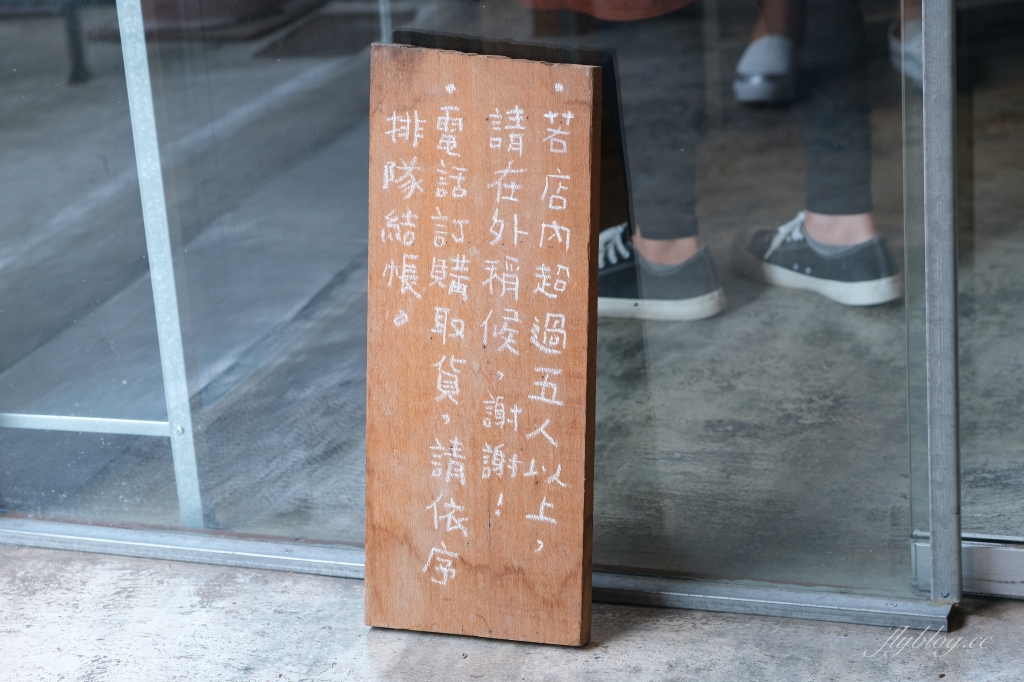 •若店內超過五人以上，
請在外稱候，謝謝！
•電話訂購取貨，請依序
排隊結帳。
flyblog.cc